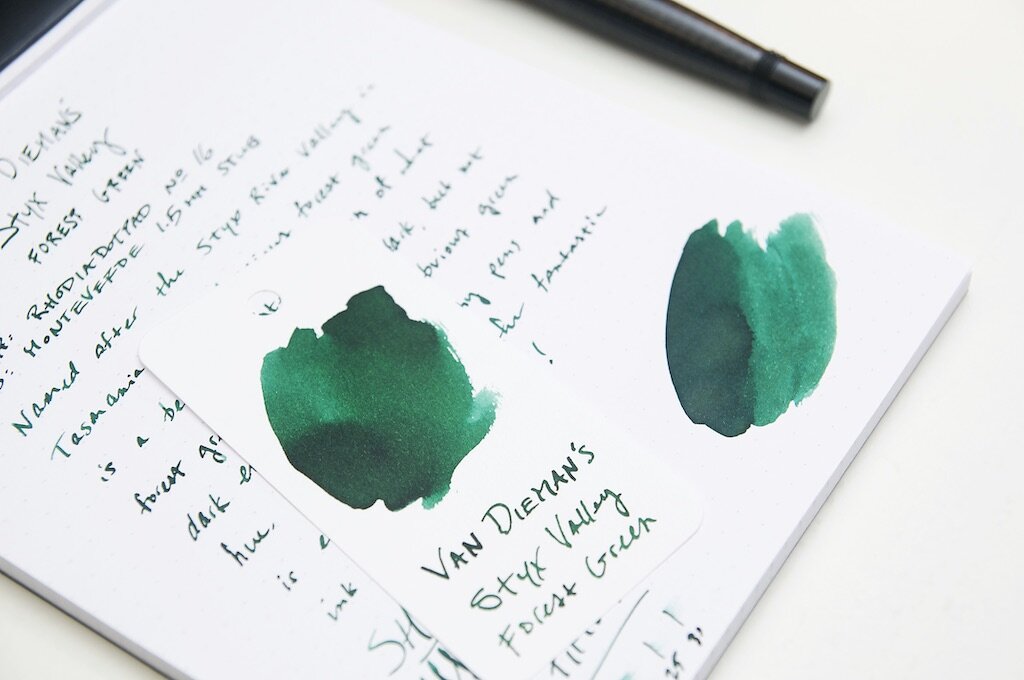 DIEMAN'S
Styx Valley
FOREST GREEN
RHODIA DOTPAD No 16
MONTEVERDE 1.5 mm STUB
Named after the Styx River Valley in
Tasmania forest green
is a of what
forest but not
dark green
hue. pens and
is fantastic
ink !
VAN DIEMAN'S
Styx Valley
Forest Green